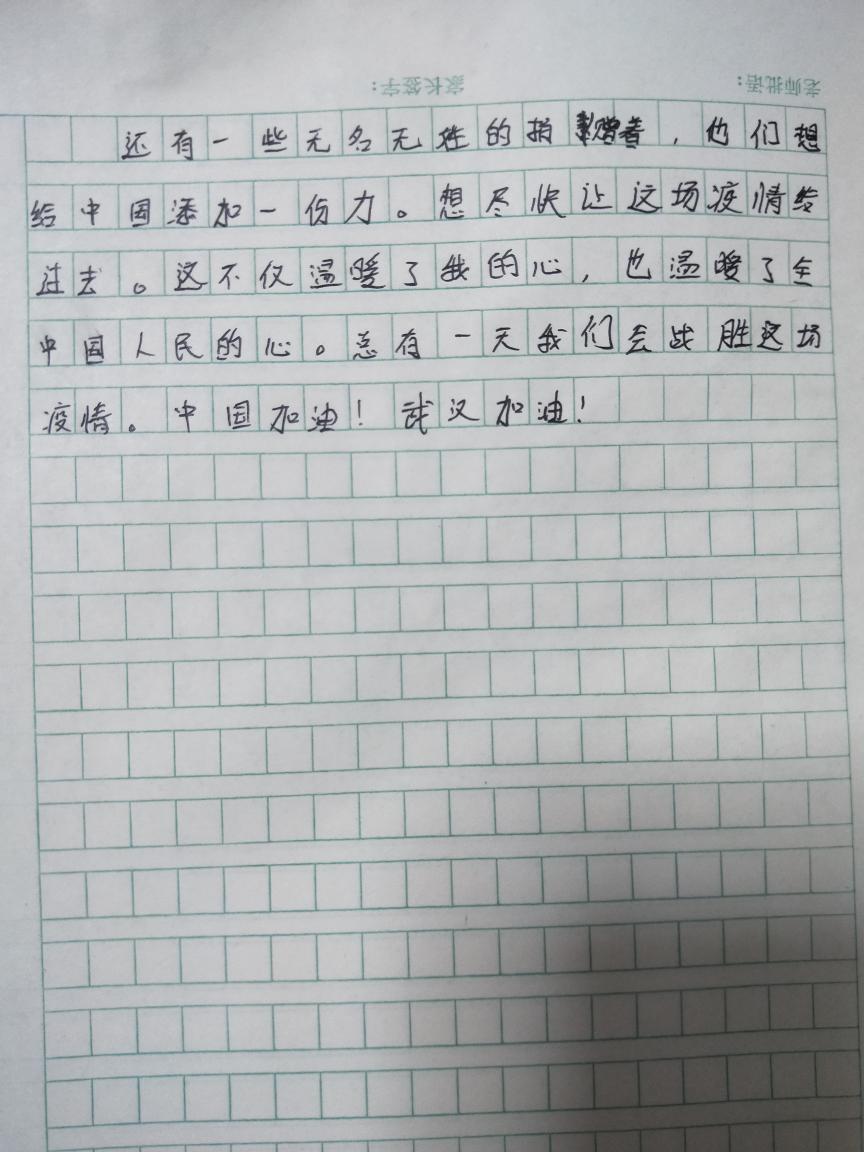 老师批语： 家长签字：
还有一些无名无姓的捐赠者，他们想
给中国添加一份力。想尽快让这场疫情给
过去。这不仅温暖了我的心，也温暖了全
中国人民的心。总有一天我们会战胜这场
疫情。中国加油！武汉加油！